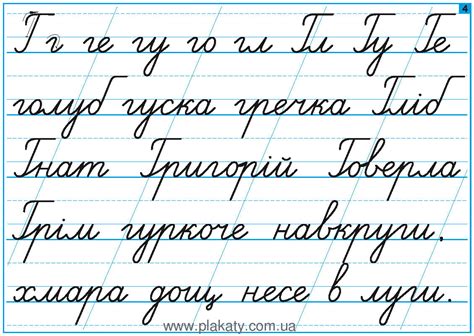 4
Г г ге гу го гл Гл Гу Ге
голуб гуска гречка Гліб
Гнат Григорій Говерла
Грім гуркоче навкруги,
хмара дощ несе в луги.
www.plakaty.com.ua